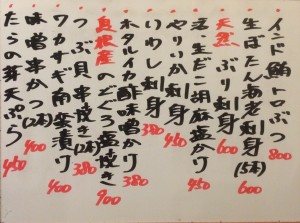 インド鮪トロぶつ 800
生ぼたん海老刺身(5本) 600
天然ぶり刺身 450
活生だこ胡麻塩かけ
やりいか刺身 450
いわし刺身 380
ホタルイカ酢味噌かけ 450
島根産のどぐろ塩焼き 900
つぶ貝串焼き(2本) 380
ワカサギ南蛮漬け 400
味噌串かつ(2本) 400
たらの芽天ぷら 450